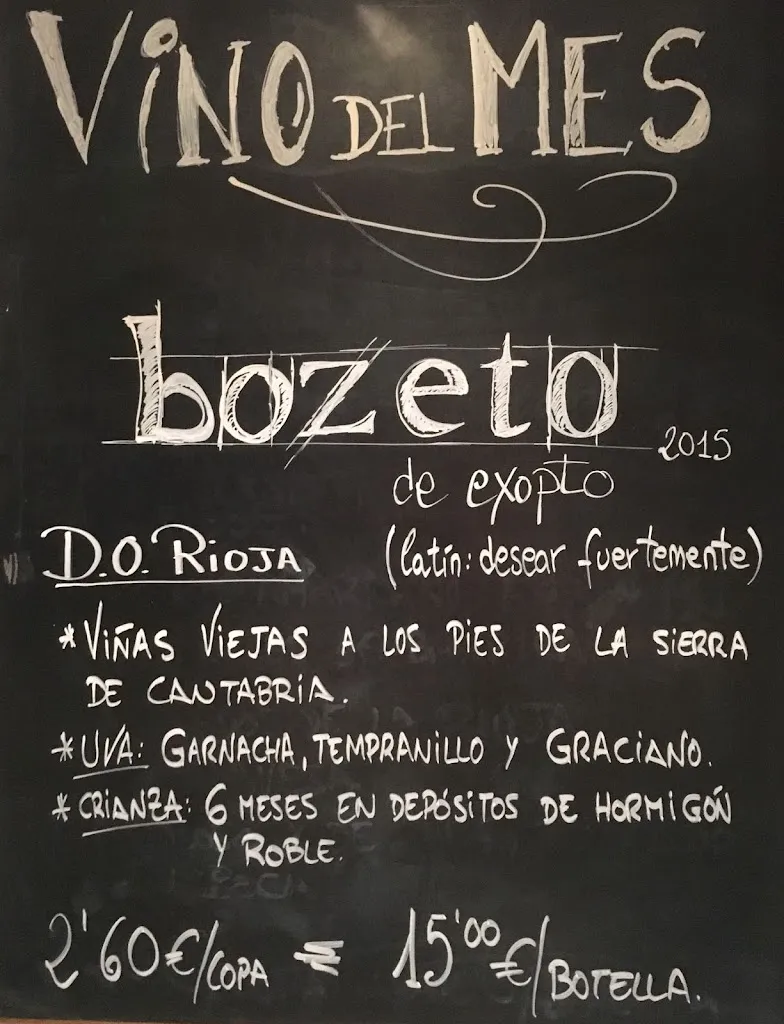 ViNO DEL MES
bozeto 2015
de exopto
D.O. RiOJA (latín: desear fuertemente)
* ViÑAS ViEJAS A LOS PiES DE LA SiERRA
DE CANTABRiA.
* UVA: GARNACHA, TEMPRANILLO Y GRACIANO.
* CRiANZA: 6 MESES EN DEPÓSiTOS DE HORMiGÓN
Y ROBLE.
2'60€/COPA = 15'00€/BOTELLA.